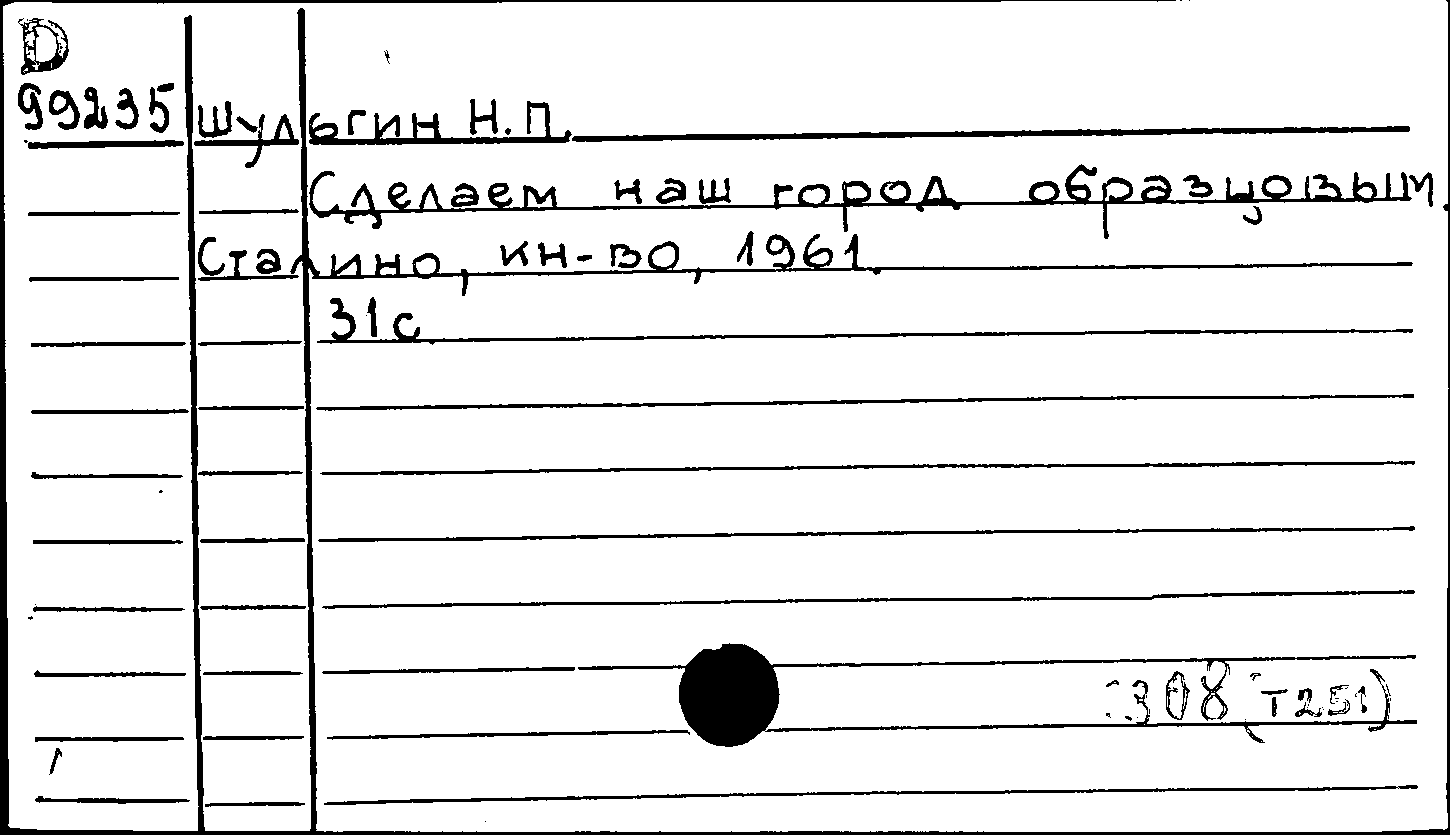 D
99235 Шульгин Н.П.
Сделаем наш город образцовым.
Сталино, кн-во, 1961.
31с
308 (Т251)